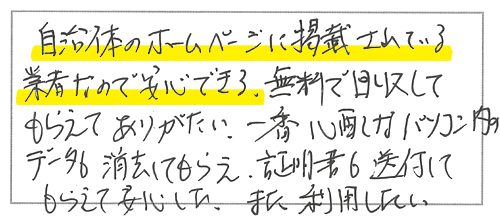 自治体のホームページに掲載されている
業者なので安心できる。無料で回収して
もらえてありがたい。一番心配なパソコン内の
データも消去してもらえ、証明書も送付して
もらえて安心した。また利用したい